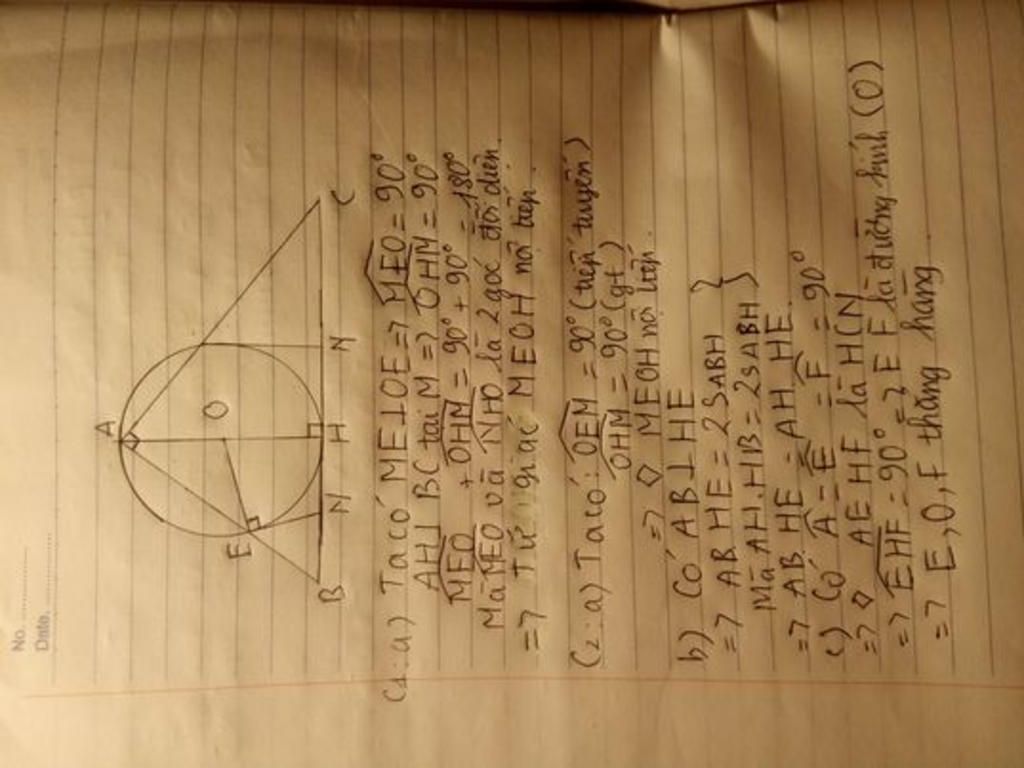 No. ............
Date. ............
A
O
E
B
N
H
N
C
C1: a) Ta có ME⊥OE => MEO = 90°
AH⊥BC tại M => OHM = 90°
MEO + OHM = 90° + 90° = 180°
Mà MEO và NHO là 2 góc đối diện.
=> Tứ giác MEOH nội tiếp.
C2: a) Ta có: OEM = 90° (tiếp tuyến)
OHM = 90° (gt)
=> ◇ MEOH nội tiếp.
b) Có AB⊥HE
=> AB HE = 2SABH }
Mà AH.HB = 2SABH
=> AB HE = AH HE.
c) Có A = E = F = 90°
=> ◇ AEHF là HCN
=> EHF = 90° => EF là đường kính (O)
=> E, O, F thẳng hàng.